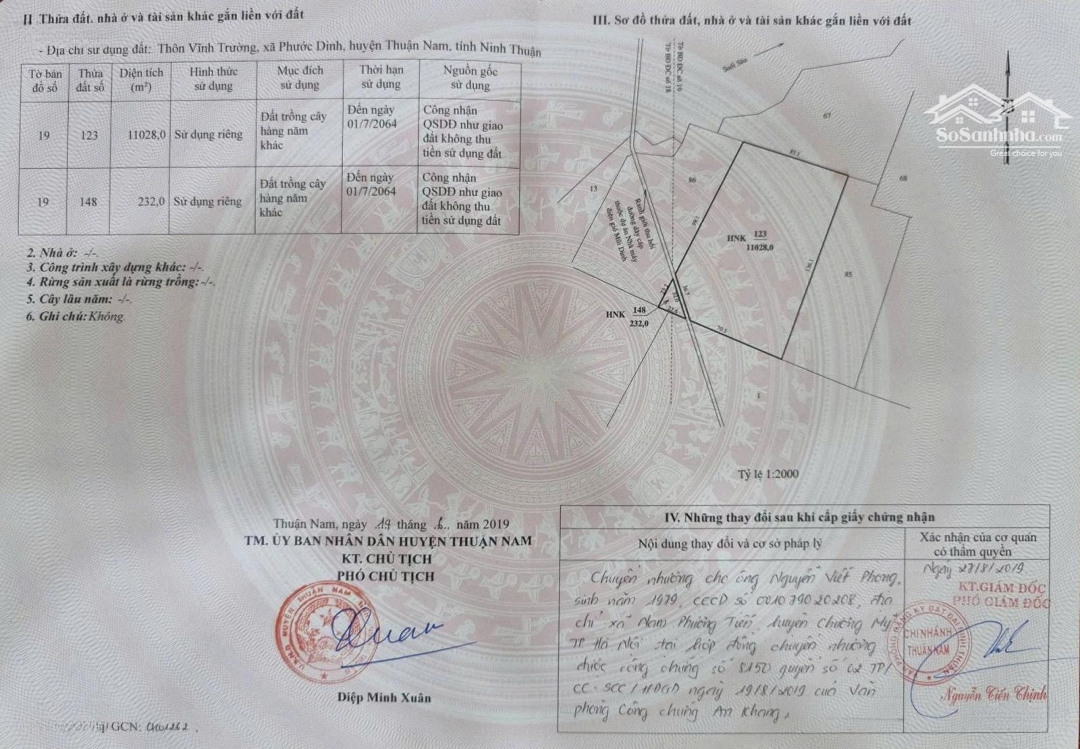 II Thửa đất, nhà ở và tài sản khác gắn liền với đất
- Địa chỉ sử dụng đất: Thôn Vĩnh Trường, xã Phước Dinh, huyện Thuận Nam, tỉnh Ninh Thuận
Tờ bản đồ số | Thửa đất số | Diện tích (m²) | Hình thức sử dụng | Mục đích sử dụng | Thời hạn sử dụng | Nguồn gốc sử dụng
19 | 123 | 11028,0 | Sử dụng riêng | Đất trồng cây hàng năm khác | Đến ngày 01/7/2064 | Công nhận QSDĐ như giao đất không thu tiền sử dụng đất
19 | 148 | 232,0 | Sử dụng riêng | Đất trồng cây hàng năm khác | Đến ngày 01/7/2064 | Công nhận QSDĐ như giao đất không thu tiền sử dụng đất
2. Nhà ở: -/-.
3. Công trình xây dựng khác: -/-.
4. Rừng sản xuất là rừng trồng: -/-.
5. Cây lâu năm: -/-.
6. Ghi chú: Không.
III. Sơ đồ thửa đất, nhà ở và tài sản khác gắn liền với đất
SoSanhnha.com
Great choice for you
67
68
86
13
85
1
HNK 123
11028,0
HNK 148
232,0
Ranh giới thu hồi
đường dây cáp
thuộc dự án Nhà máy
điện gió Mũi Dinh
Tỷ lệ 1:2000
Thuận Nam, ngày 19 tháng 6 năm 2019
TM. ỦY BAN NHÂN DÂN HUYỆN THUẬN NAM
KT. CHỦ TỊCH
PHÓ CHỦ TỊCH
Diệp Minh Xuân
IV. Những thay đổi sau khi cấp giấy chứng nhận
Nội dung thay đổi và cơ sở pháp lý
Xác nhận của cơ quan
có thẩm quyền
Chuyển nhượng cho ông Nguyễn Viết Phong,
sinh năm 1979, CCCD số 001079020208, địa
chỉ xã Nam Phương Tiến, huyện Chương Mỹ,
TP Hà Nội tại hợp đồng chuyển nhượng
được công chứng số 8150 quyển số 02 TP/
CC-SCC/HĐGD ngày 19/8/2019 của Văn
phòng Công chứng An Khang.
Ngày 27/8/2019
KT.GIÁM ĐỐC
PHÓ GIÁM ĐỐC
CHI NHÁNH
THUẬN NAM
Nguyễn Tiến Thịnh
GCN: